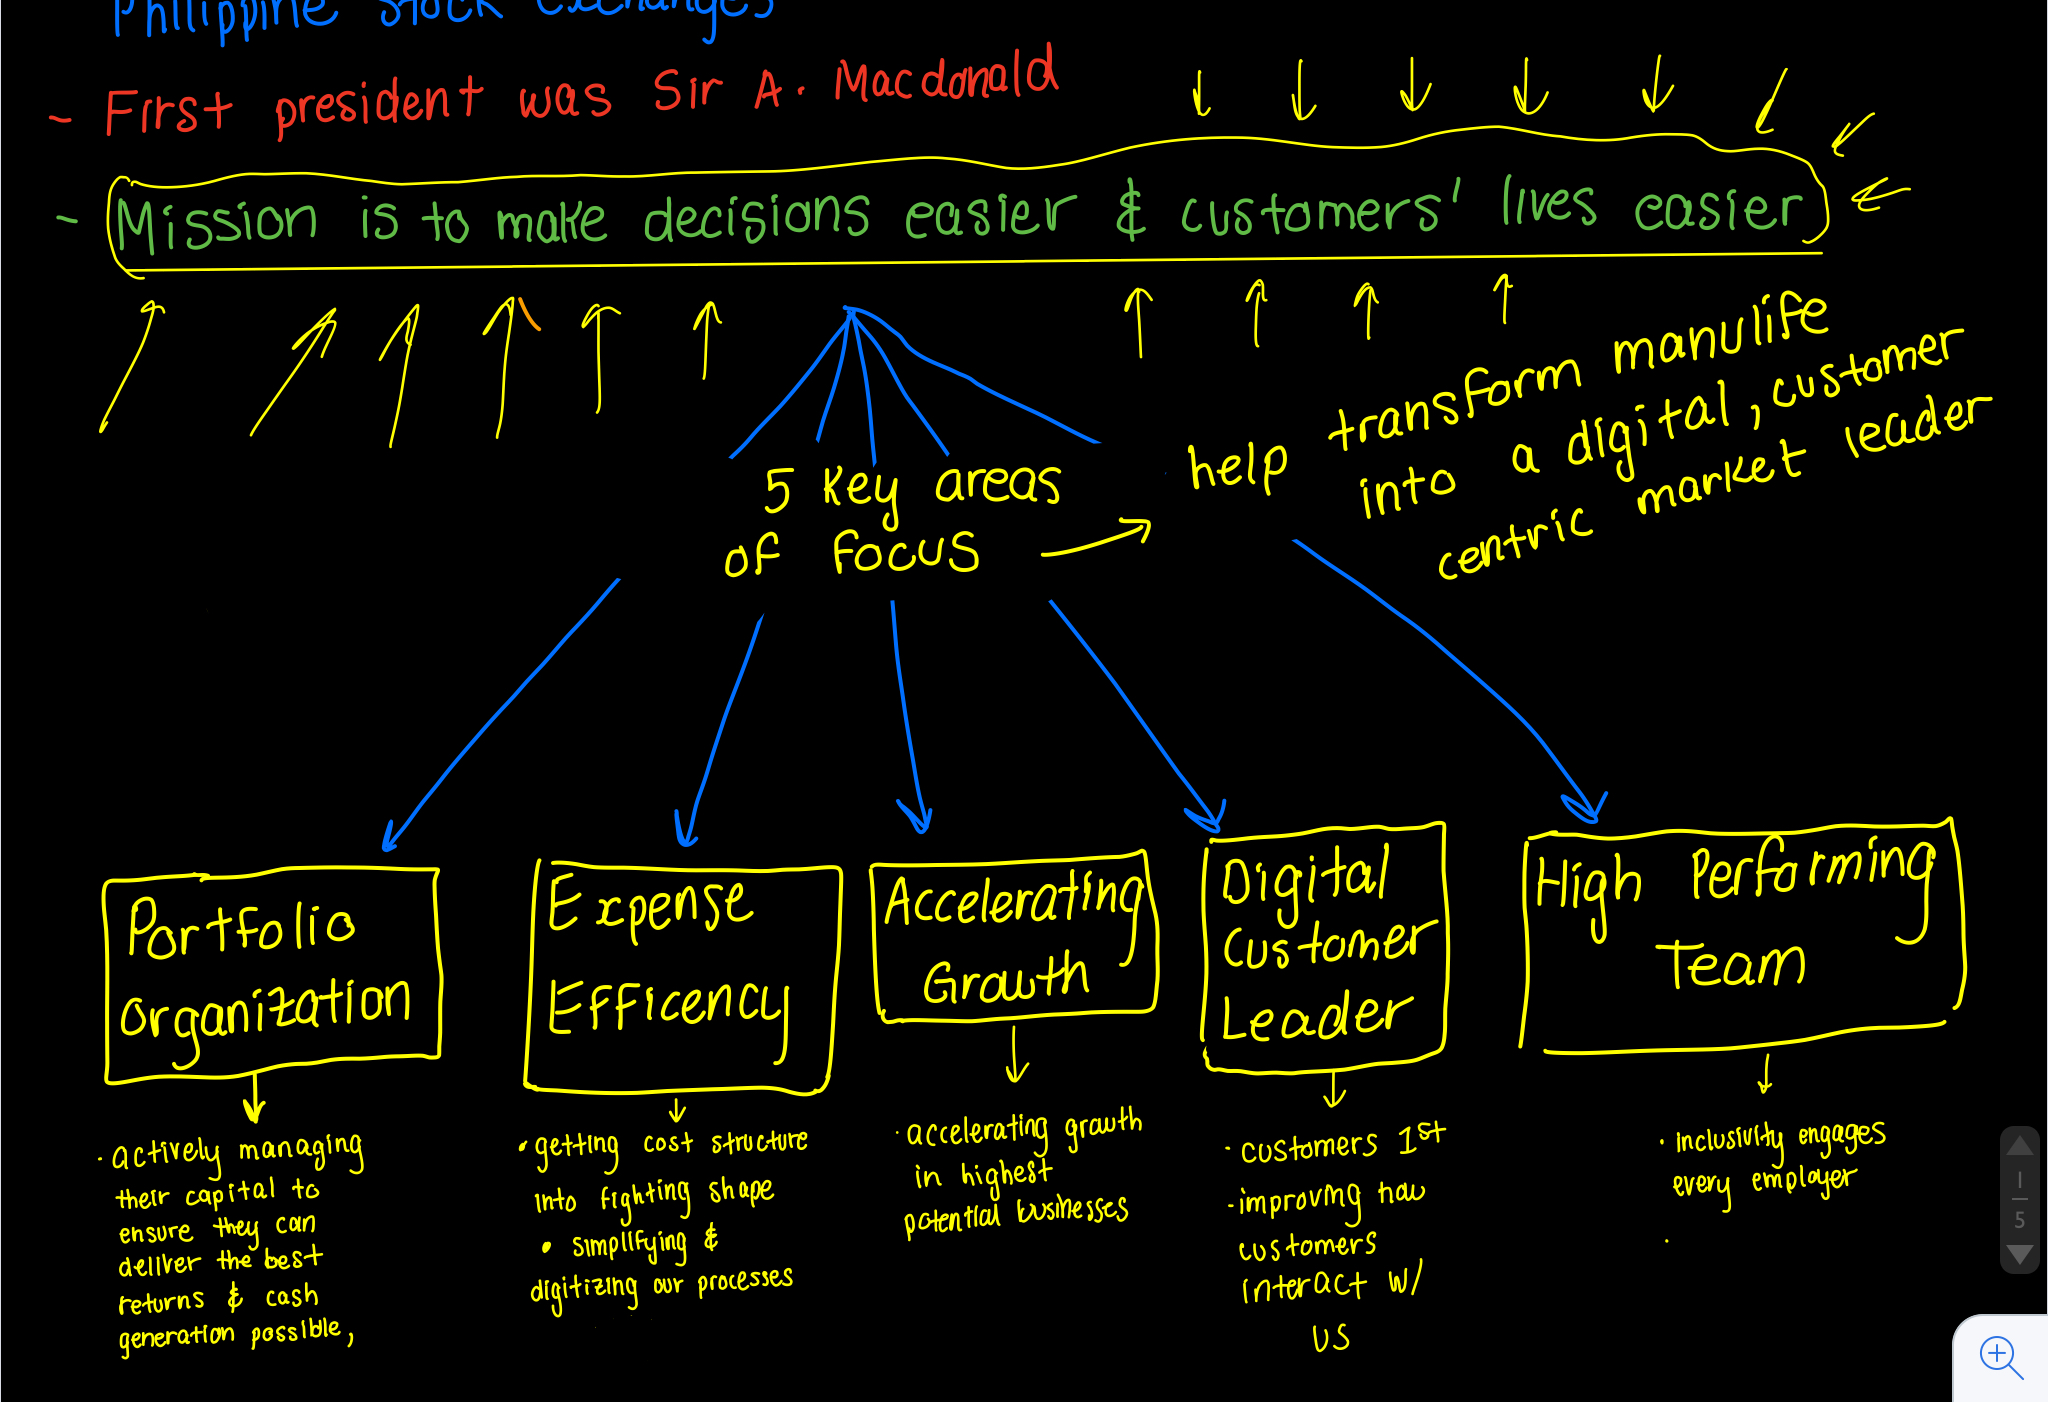 Philippine Stock Exchanges
- First president was Sir A. Macdonald
- Mission is to make decisions easier & customers' lives easier
5 key areas
of focus
help transform manulife
into a digital, customer
centric market leader
Portfolio
organization
Expense
Efficency
Accelerating
Growth
Digital
Customer
Leader
High Performing
Team
· actively managing
their capital to
ensure they can
deliver the best
returns & cash
generation possible,
• getting cost structure
into fighting shape
• simplifying &
digitizing our processes
· accelerating growth
in highest
potential businesses
- customers 1st
- improving how
customers
interact w/
us
· inclusivity engages
every employer
1
5